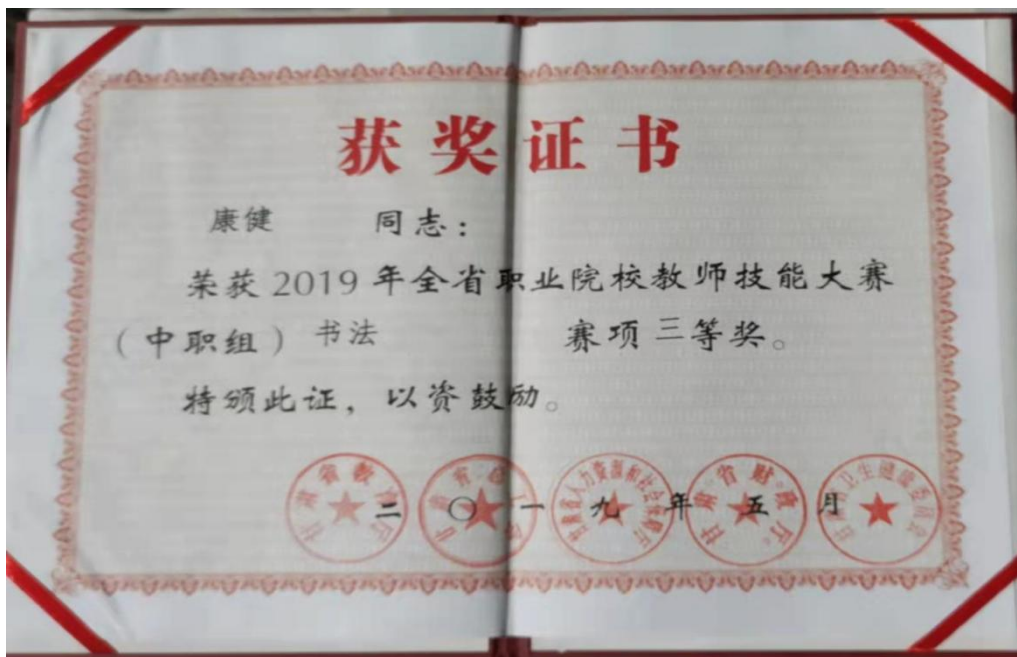 获奖证书
康健 同志：
荣获2019年全省职业院校教师技能大赛
（中职组）书法 赛项三等奖。
特颁此证，以资鼓励。
二〇一九年五月
甘肃省教育厅
甘肃省总工会
甘肃省人力资源和社会保障厅
甘肃省财政厅
甘肃省卫生健康委员会